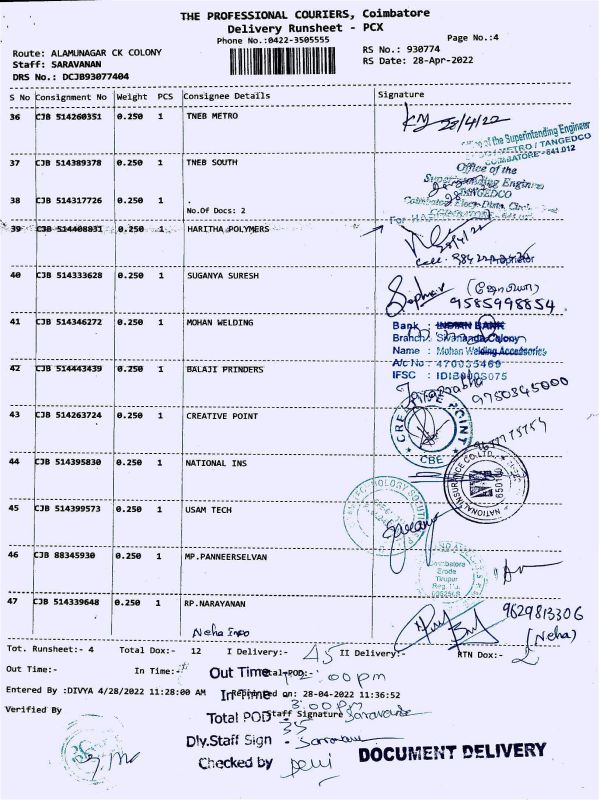 THE PROFESSIONAL COURIERS, Coimbatore
Delivery Runsheet - PCX
Phone No.:0422-3505555
Page No.:4
Route: ALAMUNAGAR CK COLONY
RS No.: 930774
Staff: SARAVANAN
RS Date: 28-Apr-2022
DRS No.: DCJB93077404
S No Consignment No Weight PCS Consignee Details Signature
36 CJB 514260351 0.250 1 TNEB METRO
28/4/22
of the Superintending Engineer
METRO / TANGEDCO
COIMBATORE - 641 012
37 CJB 514389378 0.250 1 TNEB SOUTH
Office of the
Superintending Engineer
TANGEDCO
38 CJB 514317726 0.250 1
No.Of Docs: 2
39 CJB 514408831 0.250 1 HARITHA POLYMERS
28/4/22
Proprietor
40 CJB 514333628 0.250 1 SUGANYA SURESH
9585998854
41 CJB 514346272 0.250 1 MOHAN WELDING
Bank : INDIAN BANK
Branch : Sivananda Colony
Name : Mohan Welding Accessories
A/c No : 470035469
IFSC : IDIB000S075
42 CJB 514443439 0.250 1 BALAJI PRINDERS
9750345000
43 CJB 514263724 0.250 1 CREATIVE POINT
CREATIVE POINT
CBE
44 CJB 514395830 0.250 1 NATIONAL INS
NATIONAL INSURANCE CO. LTD.
45 CJB 514399573 0.250 1 USAM TECH
46 CJB 88345930 0.250 1 MP.PANNEERSELVAN
Coimbatore
Erode
Tirupur
47 CJB 514339648 0.250 1 RP.NARAYANAN
Neha Info
9629813306
(Neha)
Tot. Runsheet:- 4 Total Dox:- 12 I Delivery:- 45 II Delivery:- RTN Dox:- 2
Out Time:- In Time:-
Out Time 12.00 pm
Entered By :DIVYA 4/28/2022 11:28:00 AM
In Time 3:00 Pm
on: 28-04-2022 11:36:52
Verified By
Total POD - 35
Staff Signature Saravanan
Dly.Staff Sign - Saravanan
Checked by Devi
DOCUMENT DELIVERY